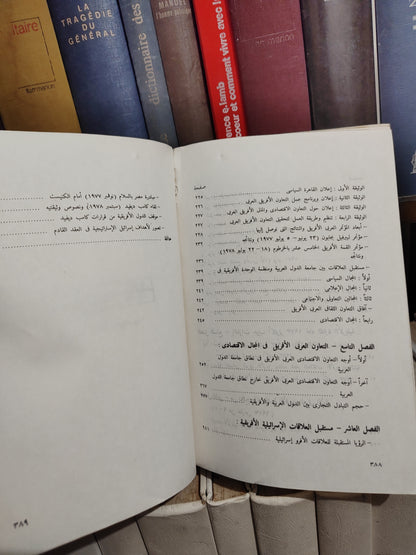 litaire
flammarion
LA
TRAGÉDIE
DU
GÉNÉRAL
dictionnaire des
MANDEL
l'homme politique
rence e.lamb
coeur et comment vivre avec
flammarion
صفحة
الوثيقة الأولى : إعلان القاهرة السياسى
٢٢٥
الوثيقة الثانية : إعلان وبرنامج عمل التعاون الأفريقى العربى
٢٢٦
الوثيقة الثالثة : إعلان حول التعاون الاقتصادى والمالى الأفريقى العربى
الوثيقة الرابعة : تنظيم وطريقة العمل لتحقيق التعاون الأفريقى العربى
- أبعاد المؤتمر العربى الأفريقى والنتائج التى توصل إليها
- مؤتمر ليبرفيل بجابون (٢٣ يونيو - ٥ يوليو ١٩٧٧) ونتائجه
- مؤتمر القمة الأفريقى الخامس عشر بالخرطوم (١٨ – ٢٢ يوليو ١٩٧٨)
ونتائجه
- مستقبل العلاقات بين جامعة الدول العربية ومنظمة الوحدة الأفريقية فى
٢٣٩
أولاً : المجال السياسى
٢٣٩
ثانياً : المجال الإعلامى
ثالثاً : المجالين التعاونى والاجتماعى
- اتفاق التعاون الثقافى العربى الأفريقى
رابعاً : المجال الاقتصادى
٢٤٥
الفصل التاسع – التعاون العربى الأفريقى فى المجال الاقتصادى :
أولاً – أوجه التعاون الاقتصادى العربى الأفريقى فى نطاق جامعة الدول
العربية
٢٥٧
آخراً – أوجه التعاون الاقتصادى العربى الأفريقى خارج نطاق جامعة الدول
العربية
- حجم التبادل التجارى بين الدول العربية والأفريقية
الفصل العاشر – مستقبل العلاقات الإسرائيلية الأفريقية :
- الرؤيا المستقبلة للعلاقات الأفرو إسرائيلية
٣٨٨
- مبادرة مصر بالسلام (نوفمبر ١٩٧٧) أمام الكنيست
- لقاء كامب ديفيد (سبتمبر ١٩٧٨) ونصوص وثيقته
- موقف الدول الأفريقية من قرارات كامب ديفيد
- تصور لأهداف إسرائيل الإستراتيجية فى العقد القادم
خاتمة
٣٨٩